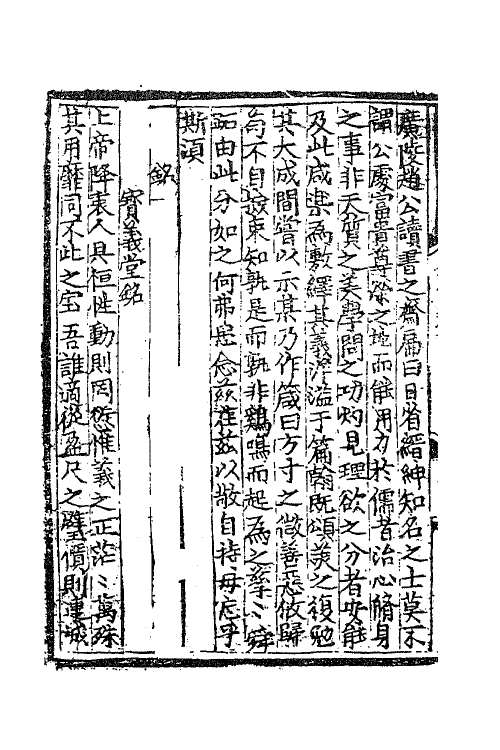 廣陵趙公讀書之齋扁曰日省縉紳知名之士莫不
謂公處富貴尊榮之地而能用力於儒者治心脩身
之事非天質之美學問之功灼見理欲之分者安能
及此咸樂為敷繹其義洋溢于篇翰既頌美之復勉
其大成間嘗以示某乃作箴曰方寸之微善惡攸歸
苟不自檢束知孰是而孰非鷄鳴而起為之孳〻舜
跖由此分如之何弗思念茲在茲以敬自持毋怠乎
斯湏
銘
寳義堂銘
上帝降衷人具恒性動則罔愆惟義之正茫〻萬殊
其用靡同不此之宝吾誰適從盈尺之璧價則連城